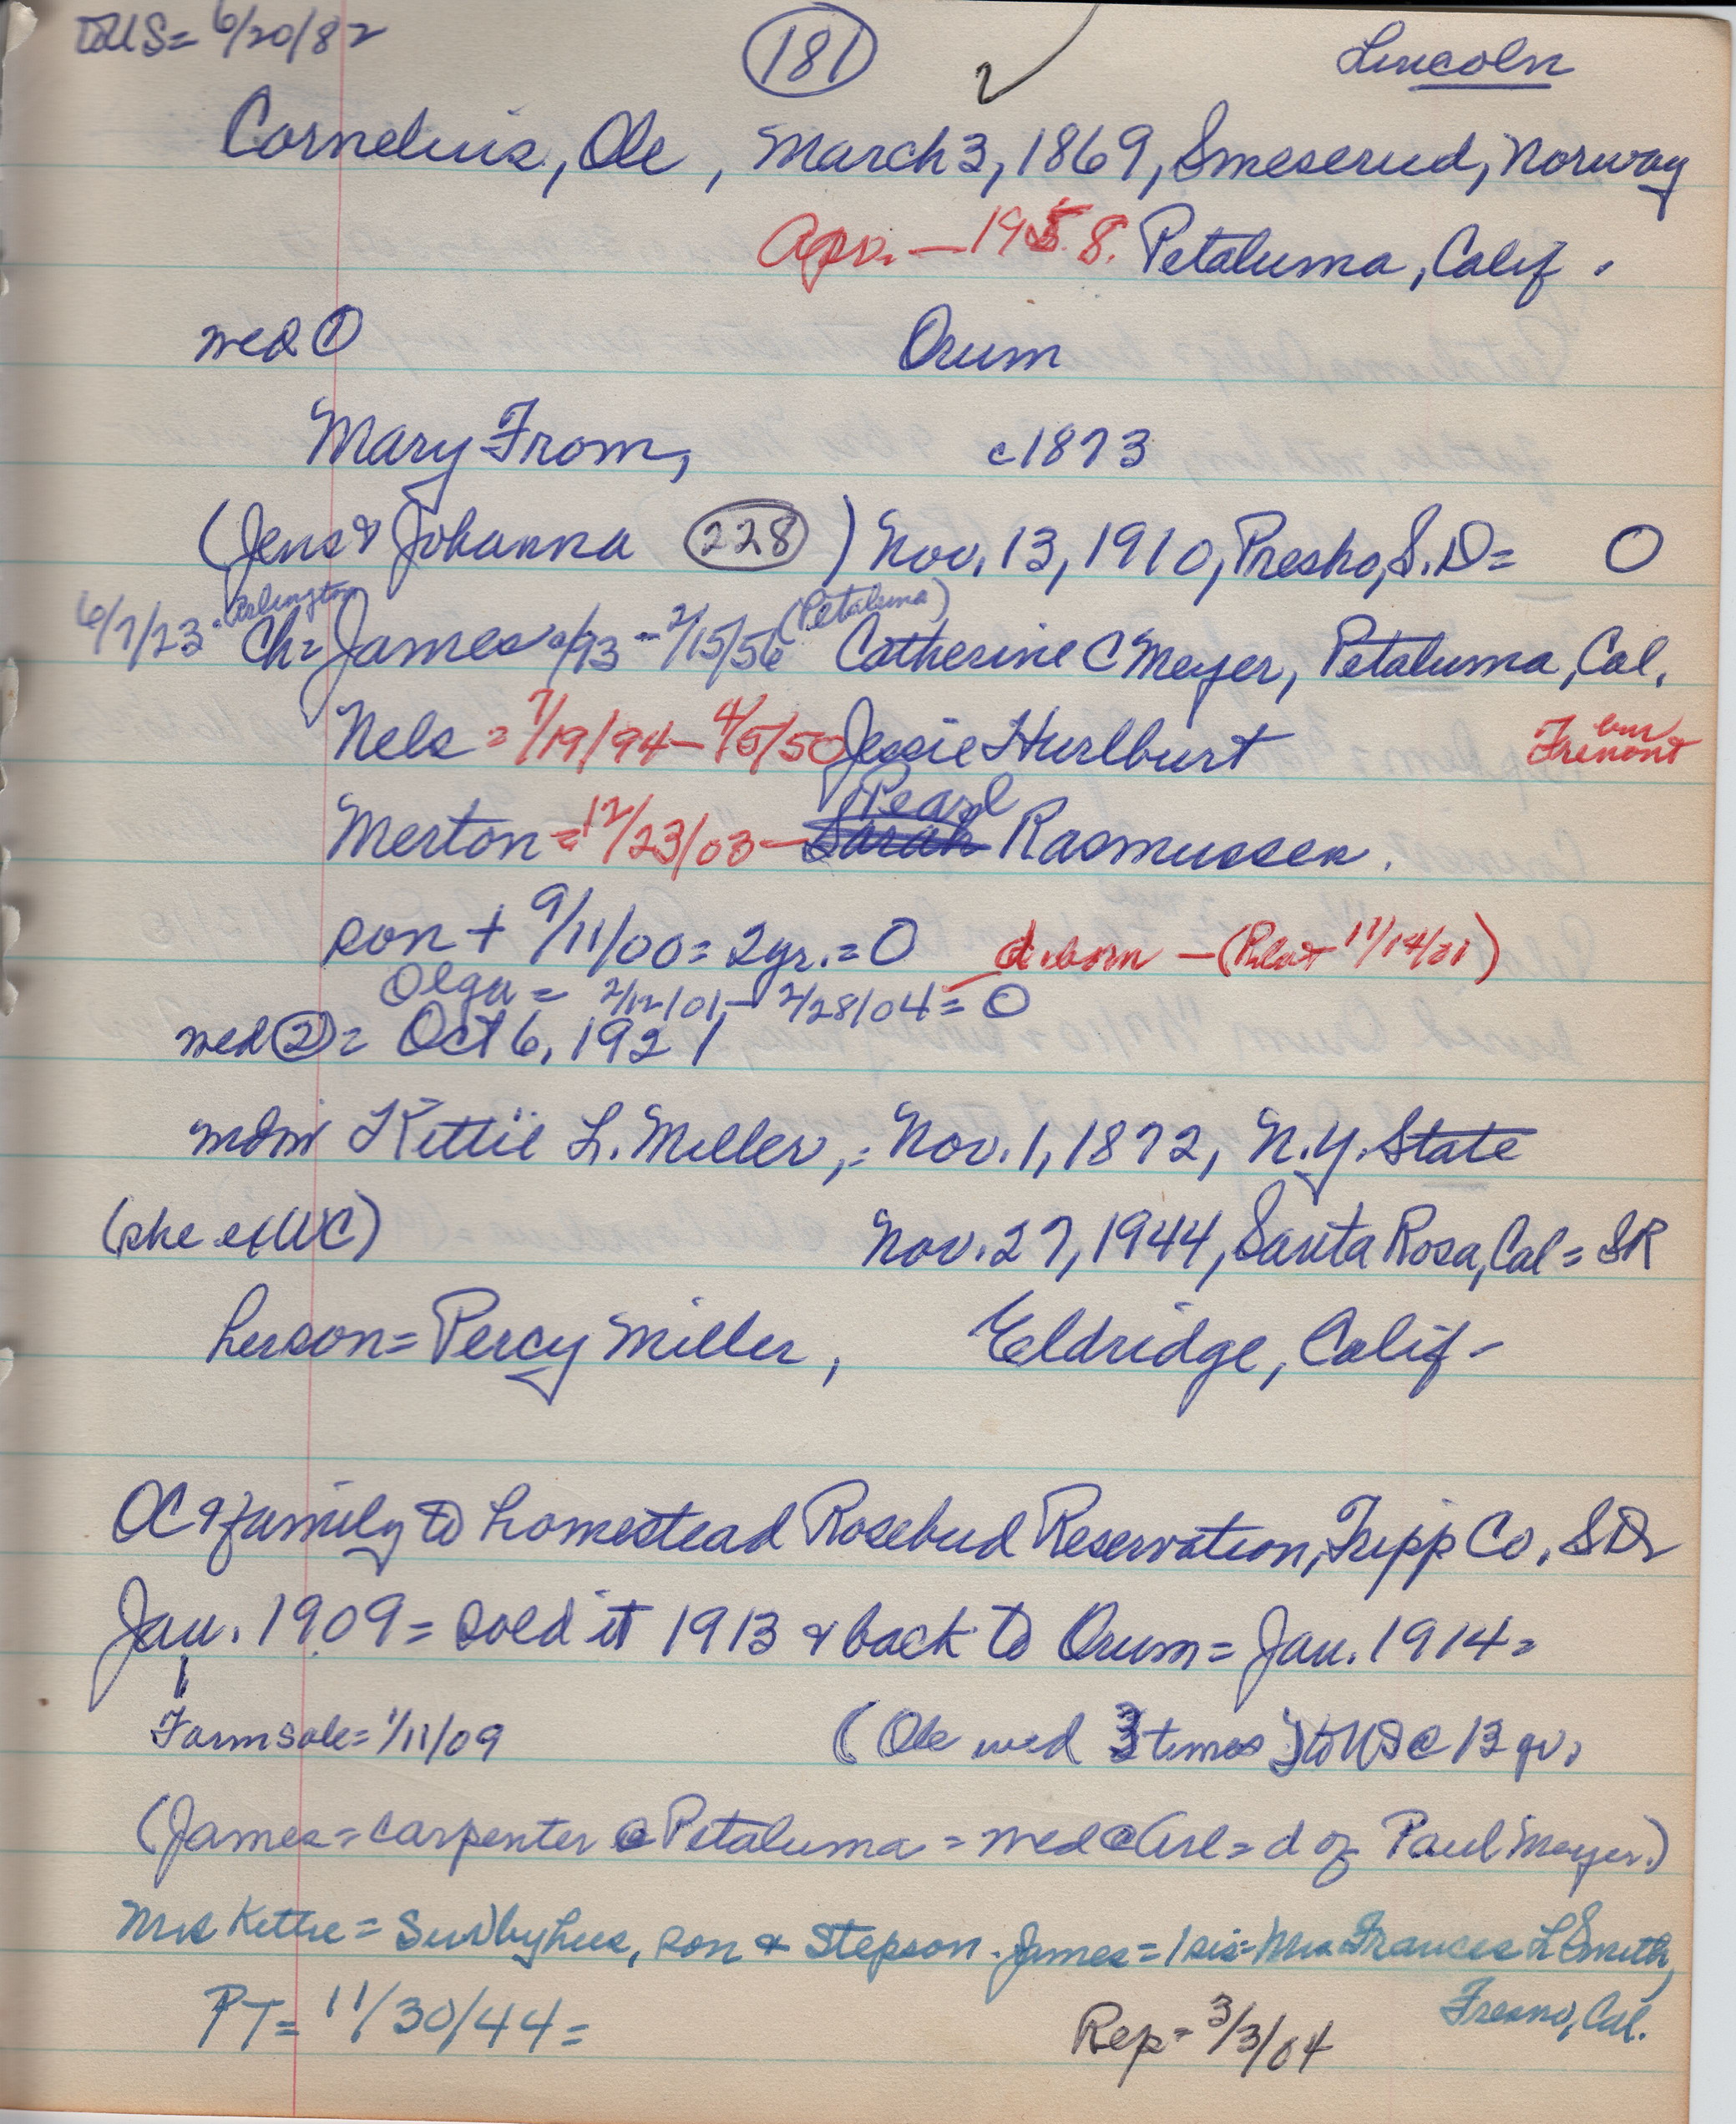 DUS= 6/20/82 (181) ✓ Lincoln
Cornelius, Ole, March 3, 1869, Smeserud, Norway
Apr. — 1958. Petaluma, Calif.
med ① Orum
Mary From, c1873
(Jens & Johanna (228)) Nov. 13, 1910, Presho, S.D= 0
6/7/23 - Arlington (Petaluma)
Ch= James - 2/15/56 Catherine C Meyer, Petaluma, Cal.
Nels = 7/19/94 — 4/5/50 Jessie Hurlburt bur Fremont
Pearl
Merton = 12/23/03 — Sarah Rasmussen.
son + 9/11/00 = 2yr. = 0 d. born — (Pilot 11/14/01)
Olga = 2/12/01 - 2/28/04 = 0
med ② = Oct 6, 1921
Kittie L. Miller, : Nov. 1, 1872, N.Y. State
(she exWC) Nov. 27, 1944, Santa Rosa, Cal = SR
her son = Percy Miller, Eldridge, Calif -
OC & family to homestead Rosebud Reservation, Tripp Co, SD
Jan. 1909 = sold it 1913 & back to Orum = Jan. 1914 =
Farm sale = 1/11/09 (Ole wed 3 times) to US @ 13 yr.
(James = carpenter @ Petaluma = med @ Arl = d of Paul Meyer.)
Mrs Kittie = Surv by hus, son & Stepson - James = 1 sis = Mrs Frances L Smith,
Fresno, Cal.
PT = 11/30/44 = Rep = 3/3/04